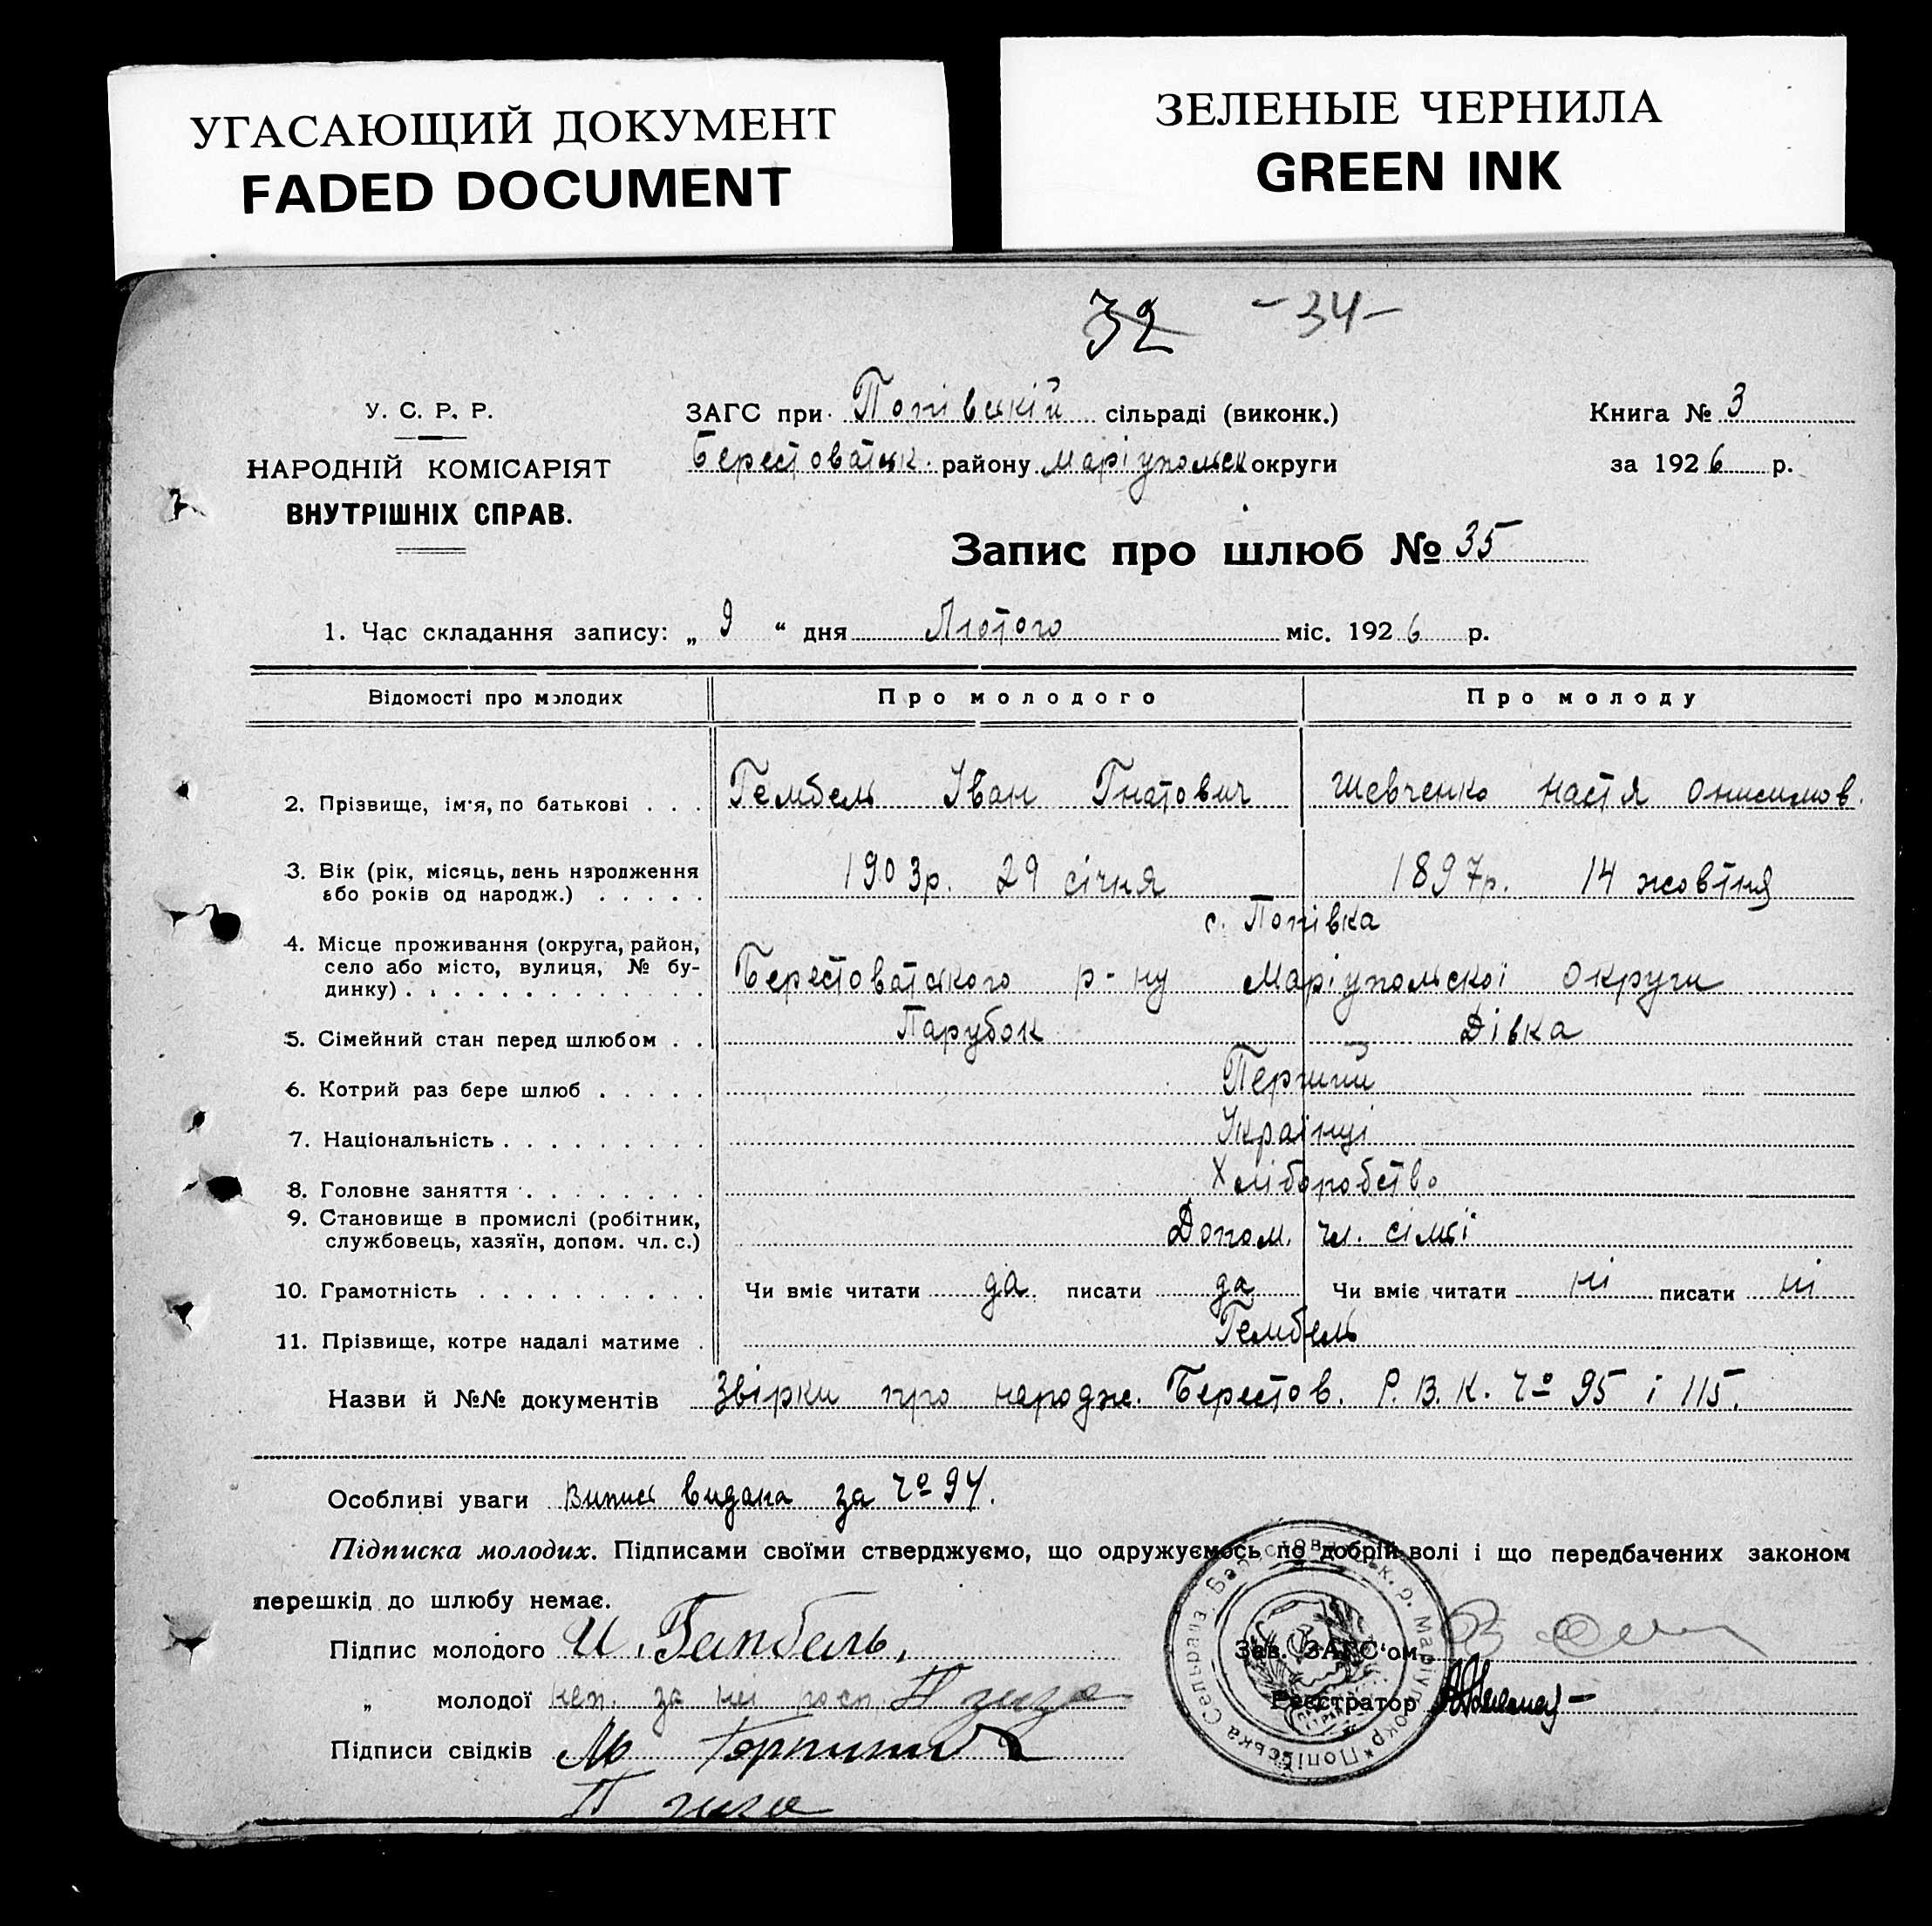 УГАСАЮЩИЙ ДОКУМЕНТ
FADED DOCUMENT
ЗЕЛЕНЫЕ ЧЕРНИЛА
GREEN INK
32 -34-
У. С. Р. Р.
НАРОДНІЙ КОМІСАРІЯТ
ВНУТРІШНІХ СПРАВ.
ЗАГС при Попівській сільраді (виконк.)
Берестоватськ. району Маріупольськ округи
Книга № 3
за 1926 р.
Запис про шлюб № 35
1. Час складання запису: „ 9 “ дня Лютого міс. 1926 р.
Відомості про молодих Про молодого Про молоду
2. Прізвище, ім'я, по батькові . . . Гембель Іван Гнатович Шевченко Настя Онисимов.
3. Вік (рік, місяць, день народження
або років од народж.) . . . . . 1903р. 29 січня 1897р. 14 жовтня
с. Попівка
4. Місце проживання (округа, район,
село або місто, вулиця, № бу-
динку) . . . . . . . . . . . . Берестоватського р-ну Маріупольскої Округи
5. Сімейний стан перед шлюбом . . Парубок Дівка
6. Котрий раз бере шлюб . . . . . Перший
7. Національність . . . . . . . . . Українці
8. Головне заняття . . . . . . . . Хліборобство
9. Становище в промислі (робітник,
службовець, хазяїн, допом. чл. с.) Допом. чл. сімьї
10. Грамотність . . . . . . . . . . Чи вміє читати да писати да Чи вміє читати ні писати ні
11. Прізвище, котре надалі матиме . Гембель
Назви й №№ документів Звірки про народж. Берестов. Р.В.К. Ч० 95 і 115.
Особливі уваги Випись видана за Ч० 94.
Підписка молодих. Підписами своїми стверджуємо, що одружуємось по добрій волі і що передбачених законом
перешкід до шлюбу немає.
Підпис молодого И. Гембель,
„ молодої неп. за неї росп.
Підписи свідків М
Зав. ЗАГС'ом
Реєстратор
Попівська Сельрада, Берестов р. Маріуп. окр *